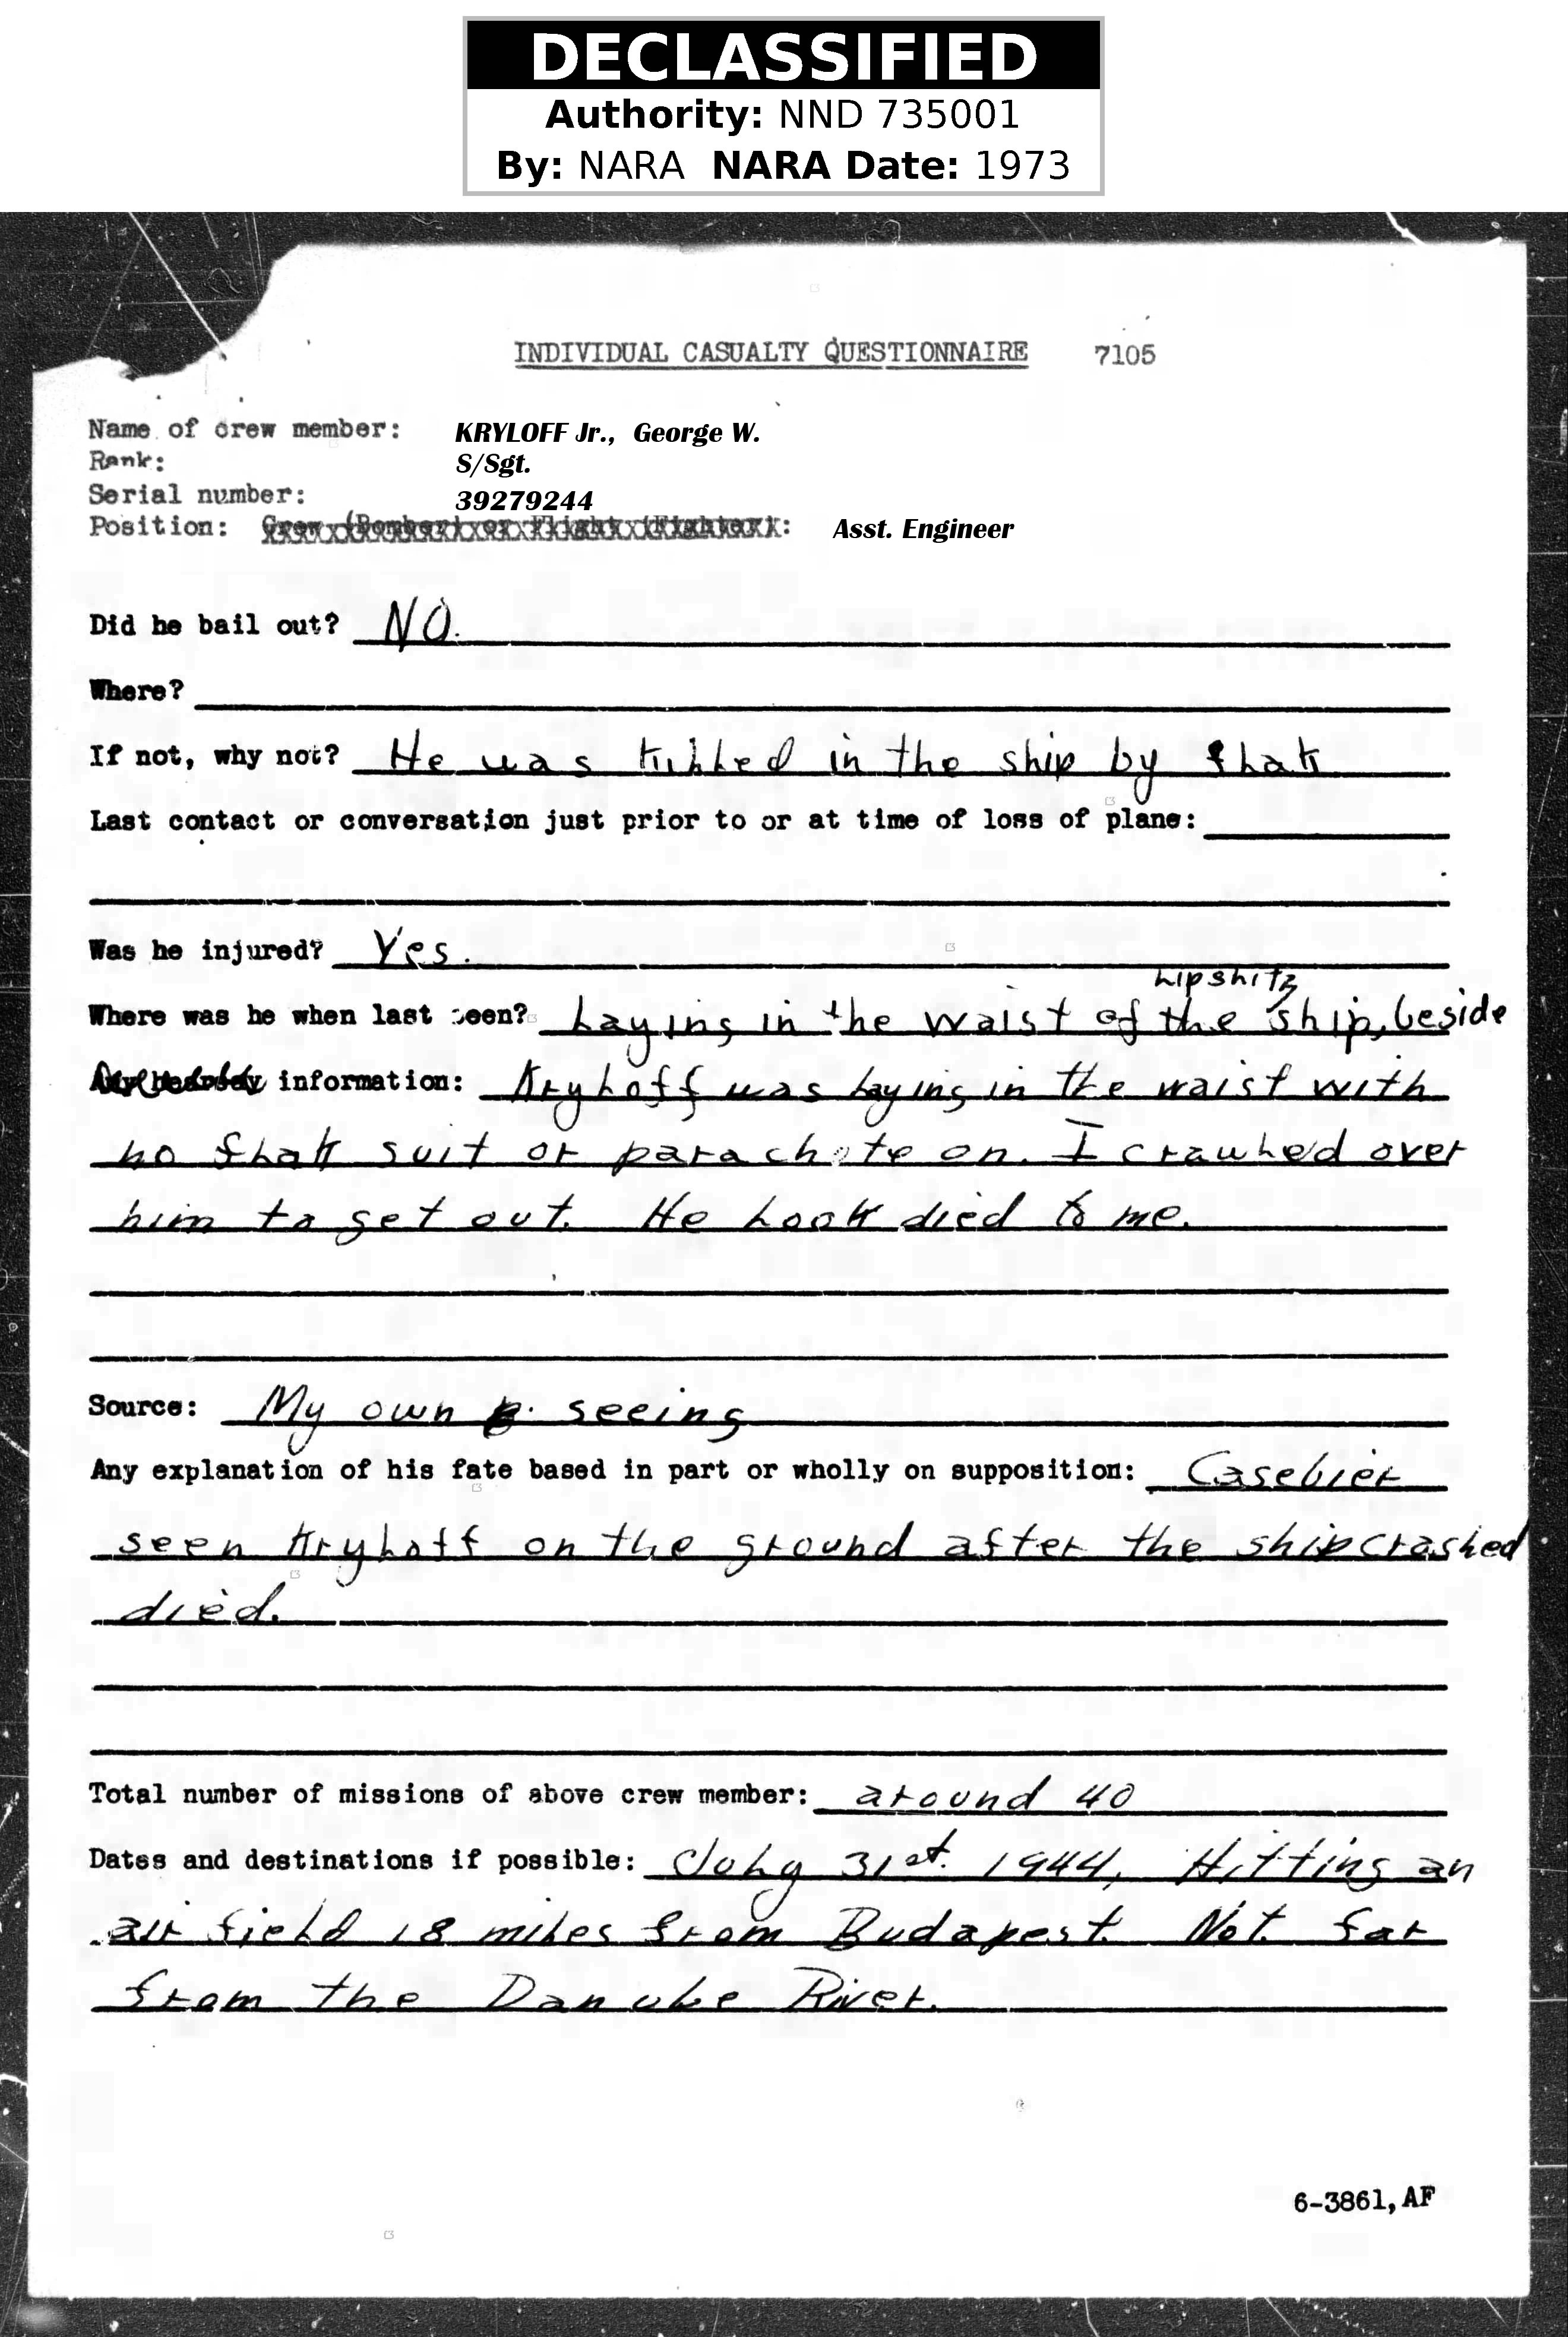 DECLASSIFIED
Authority: NND 735001
By: NARA NARA Date: 1973
INDIVIDUAL CASUALTY QUESTIONNAIRE 7105
Name of crew member: KRYLOFF Jr., George W.
Rank: S/Sgt.
Serial number: 39279244
Position: Crew (Bomber) or Flight (Fighter): Asst. Engineer
Did he bail out? NO.
Where?
If not, why not? He was killed in the ship by flak
Last contact or conversation just prior to or at time of loss of plane:
Was he injured? Yes.
Lipshitz
Where was he when last seen? Laying in the waist of the ship, beside
information: Kryloff was laying in the waist with
no flak suit or parachute on. I crawled over
him to get out. He look died to me.
Source: My own seeing
Any explanation of his fate based in part or wholly on supposition: Casebier
seen Kryloff on the ground after the ship crashed
died.
Total number of missions of above crew member: around 40
Dates and destinations if possible: July 31st. 1944, Hitting an
air field 18 miles from Budapest. Not far
from the Danube River.
6-3861, AF